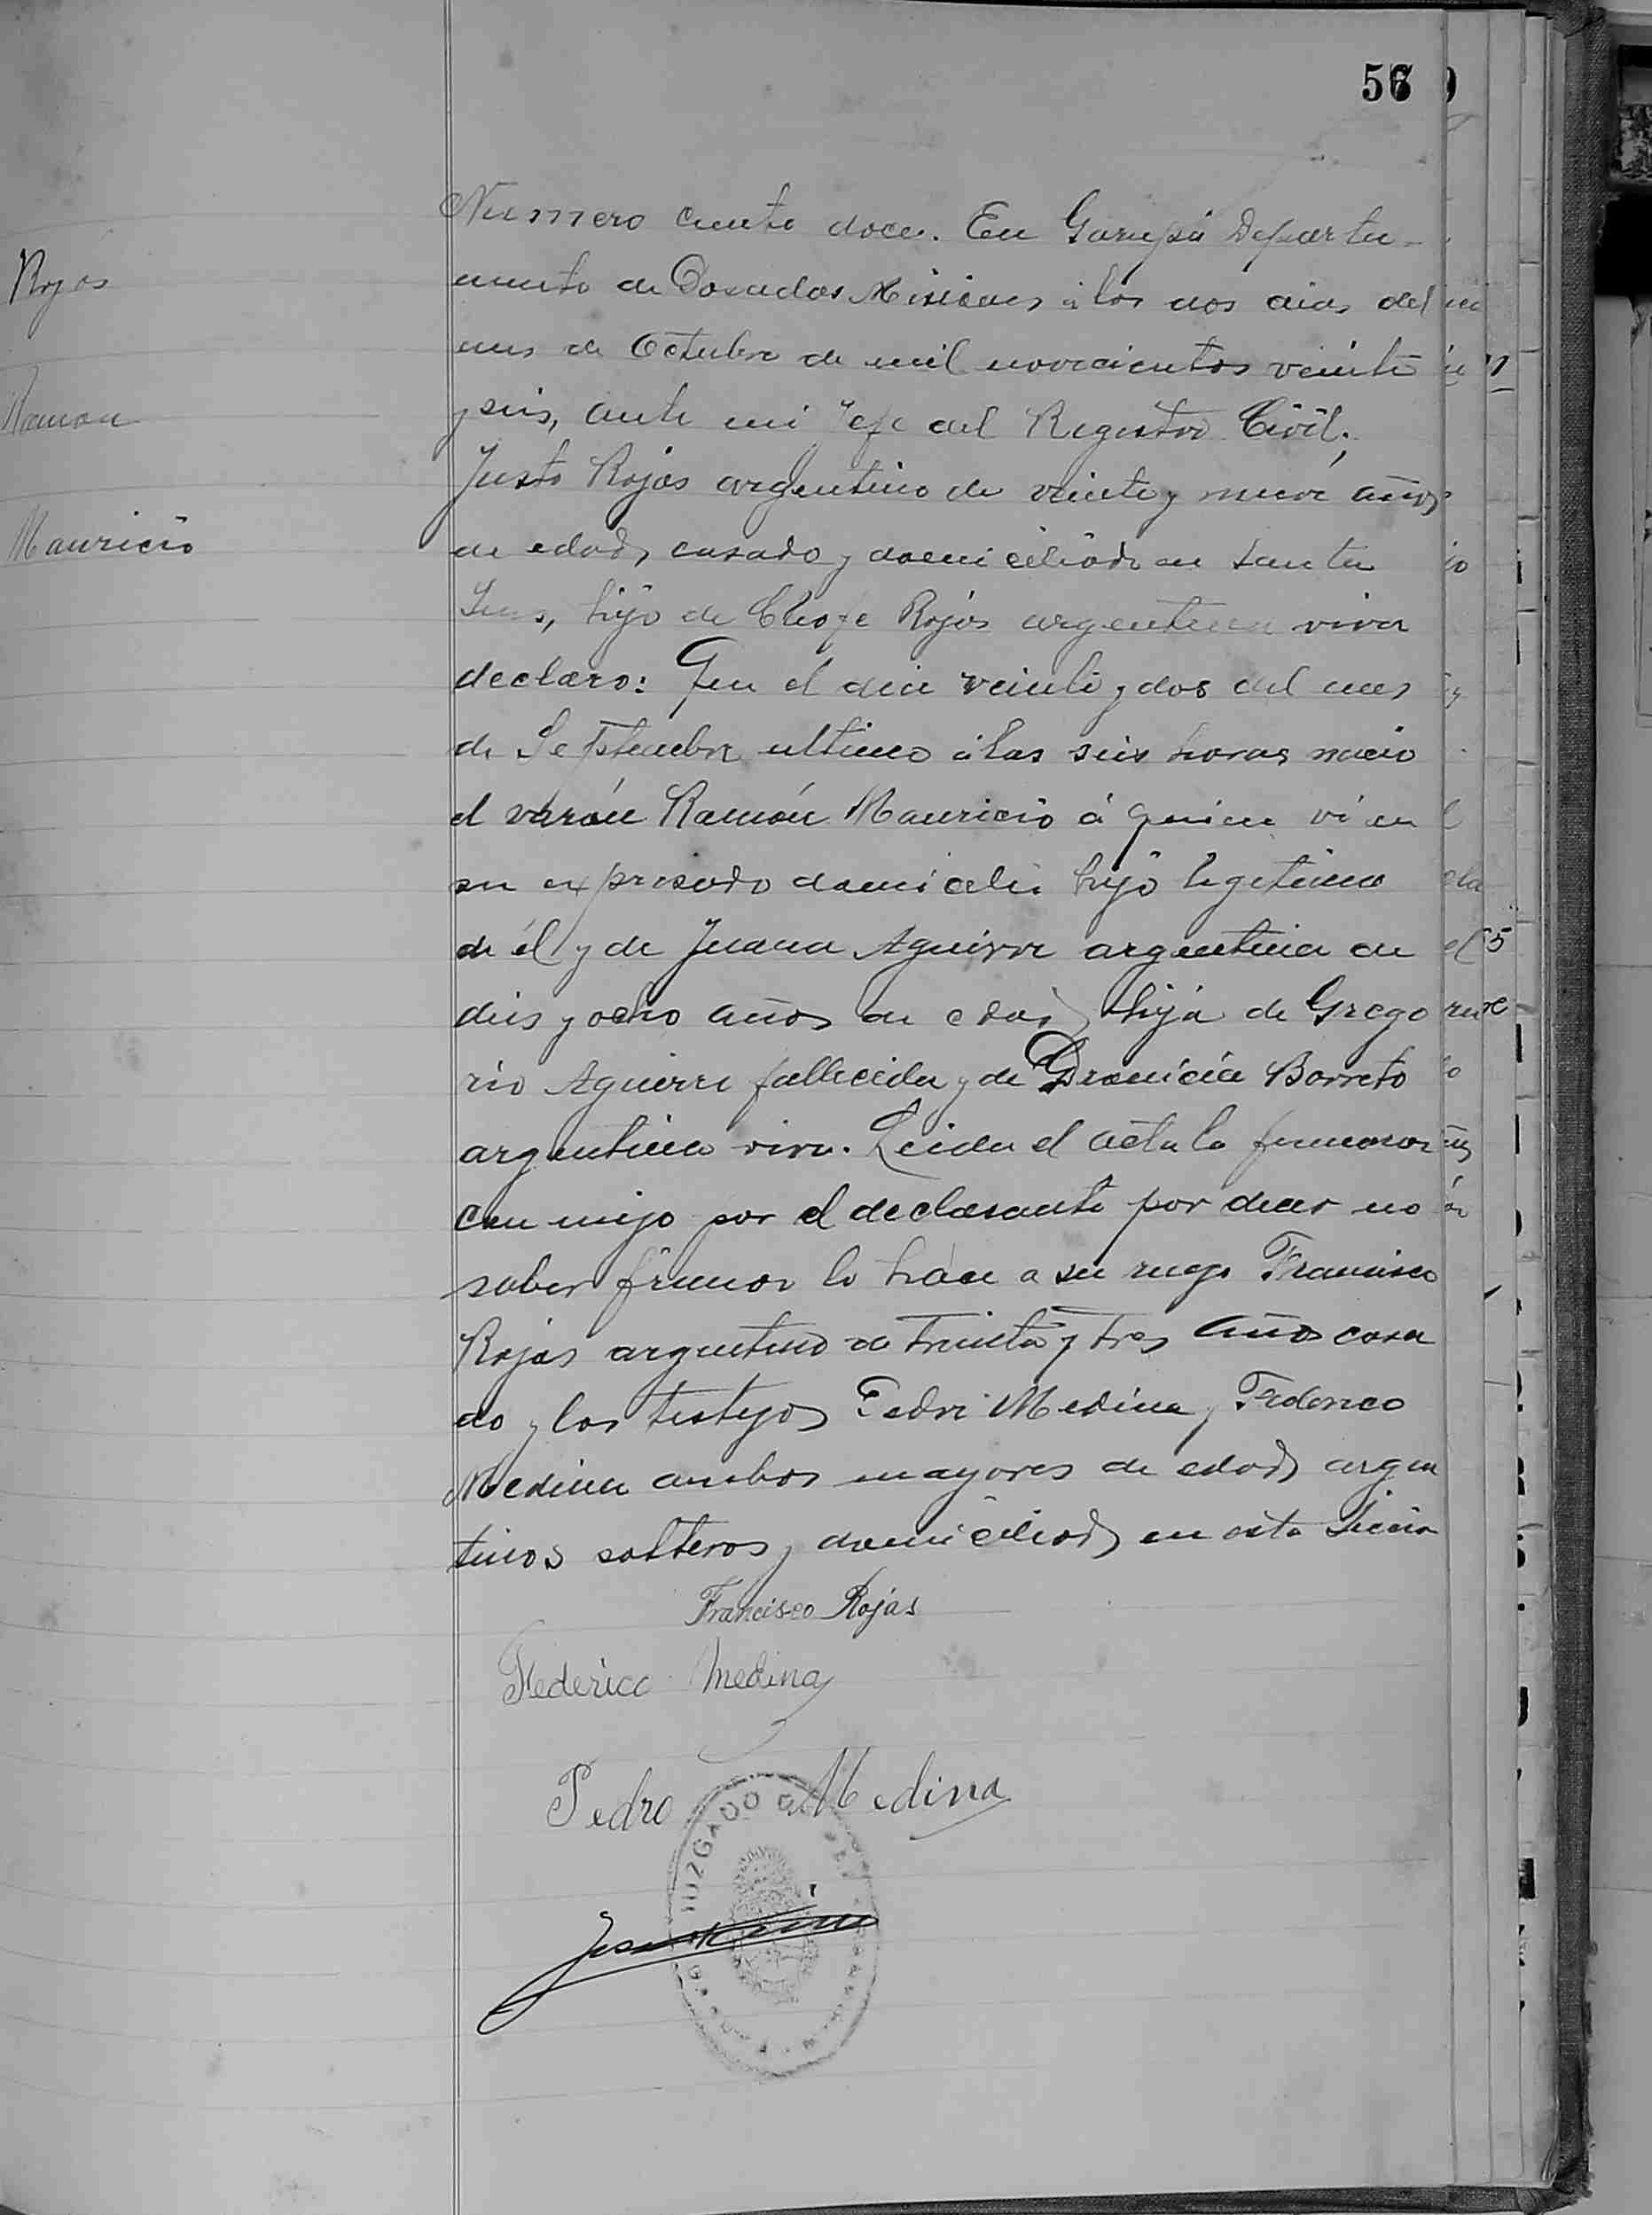 56
Rojas
Ramon
Mauricio
Numero ciento doce. En Garupá Departa-
mento de Posadas Misiones á los dos dias del
mes de Octubre de mil novecientos veinte
y seis, ante mi Jefe del Registro Civil,
Justo Rojas argentino de veinte y nueve años
de edad, casado y domiciliado en Santa
Ines, hijo de Rojas argentina viva
declaro: Que el dia veinte y dos del mes
de Septiembre ultimo á las seis horas nacio
el varón Ramón Mauricio á quien vi en
su expresado domicilio hijo legitimo
de él y de Juana Aguirre argentina de
dies y ocho años de edad, hija de Grego
rio Aguirre fallecido y de Barreto
argentina viva. Leida el acta la firmaron
con migo por el declarante por decir no
saber firmar lo hace a su ruego Francisco
Rojas argentino de treinta y tres años casa
do y los testigos Pedro Medina y Federico
Medina ambos mayores de edad argen
tinos solteros y domiciliados en esta
Francisco Rojas
Federico Medina
Pedro Medina
JUZGADO DE